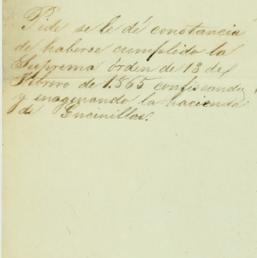 Pide se le dé constancia
de haberce cumplido la
Suprema órden de 13 de
Febrero de 1865 confiscando
y enagenando la hacienda
de Encinillas.